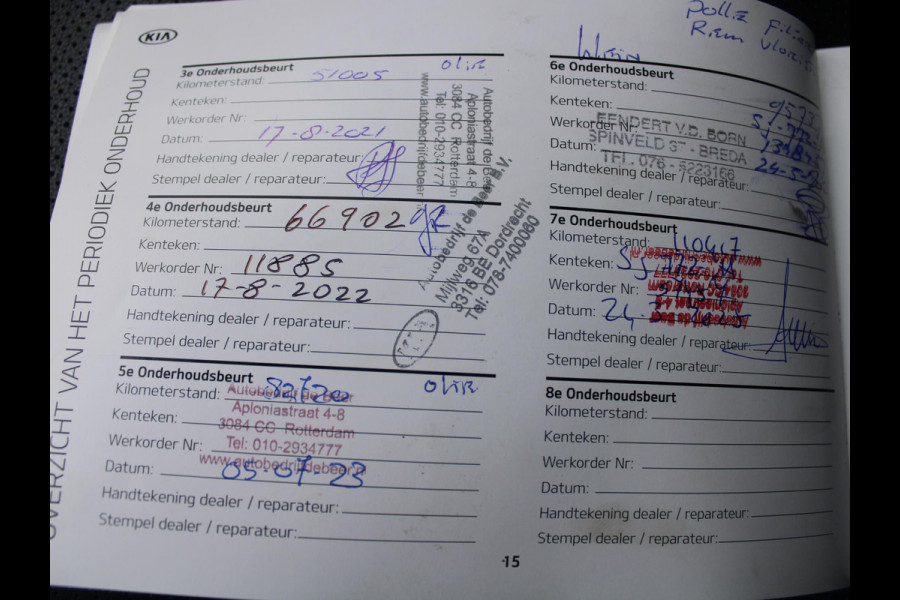 KIA
OVERZICHT VAN HET PERIODIEK ONDERHOUD
3e Onderhoudsbeurt
Kilometerstand: 51005
Kenteken:
Werkorder Nr:
Datum: 17-8-2021
Handtekening dealer / reparateur:
Stempel dealer / reparateur:
Autobedrijf de Beer
Aploniastraat 4-8
3084 CC Rotterdam
Tel: 010-2934777
www.autobedrijfdebeer
4e Onderhoudsbeurt
Kilometerstand: 66902
Kenteken:
Werkorder Nr: 11885
Datum: 17-8-2022
Handtekening dealer / reparateur:
Stempel dealer / reparateur:
Autobedrijf de Beer B.V.
Mijlweg 67A
3316 BE Dordrecht
Tel: 078-7400060
5e Onderhoudsbeurt
Kilometerstand: 82720
Kenteken:
Werkorder Nr:
Datum: 05-07-23
Handtekening dealer / reparateur:
Stempel dealer / reparateur:
Autobedrijf de Beer
Aploniastraat 4-8
3084 CC Rotterdam
Tel: 010-2934777
www.autobedrijfdebeer
6e Onderhoudsbeurt
Kilometerstand:
Kenteken:
Werkorder Nr:
Datum:
Handtekening dealer / reparateur:
Stempel dealer / reparateur:
LEENDERT V.D. BORN
SPINVELD 37 - BREDA
TEL. 076 - 5223166
7e Onderhoudsbeurt
Kilometerstand: 110417
Kenteken:
Werkorder Nr:
Datum:
Handtekening dealer / reparateur:
Stempel dealer / reparateur:
8e Onderhoudsbeurt
Kilometerstand:
Kenteken:
Werkorder Nr:
Datum:
Handtekening dealer / reparateur:
Stempel dealer / reparateur:
15